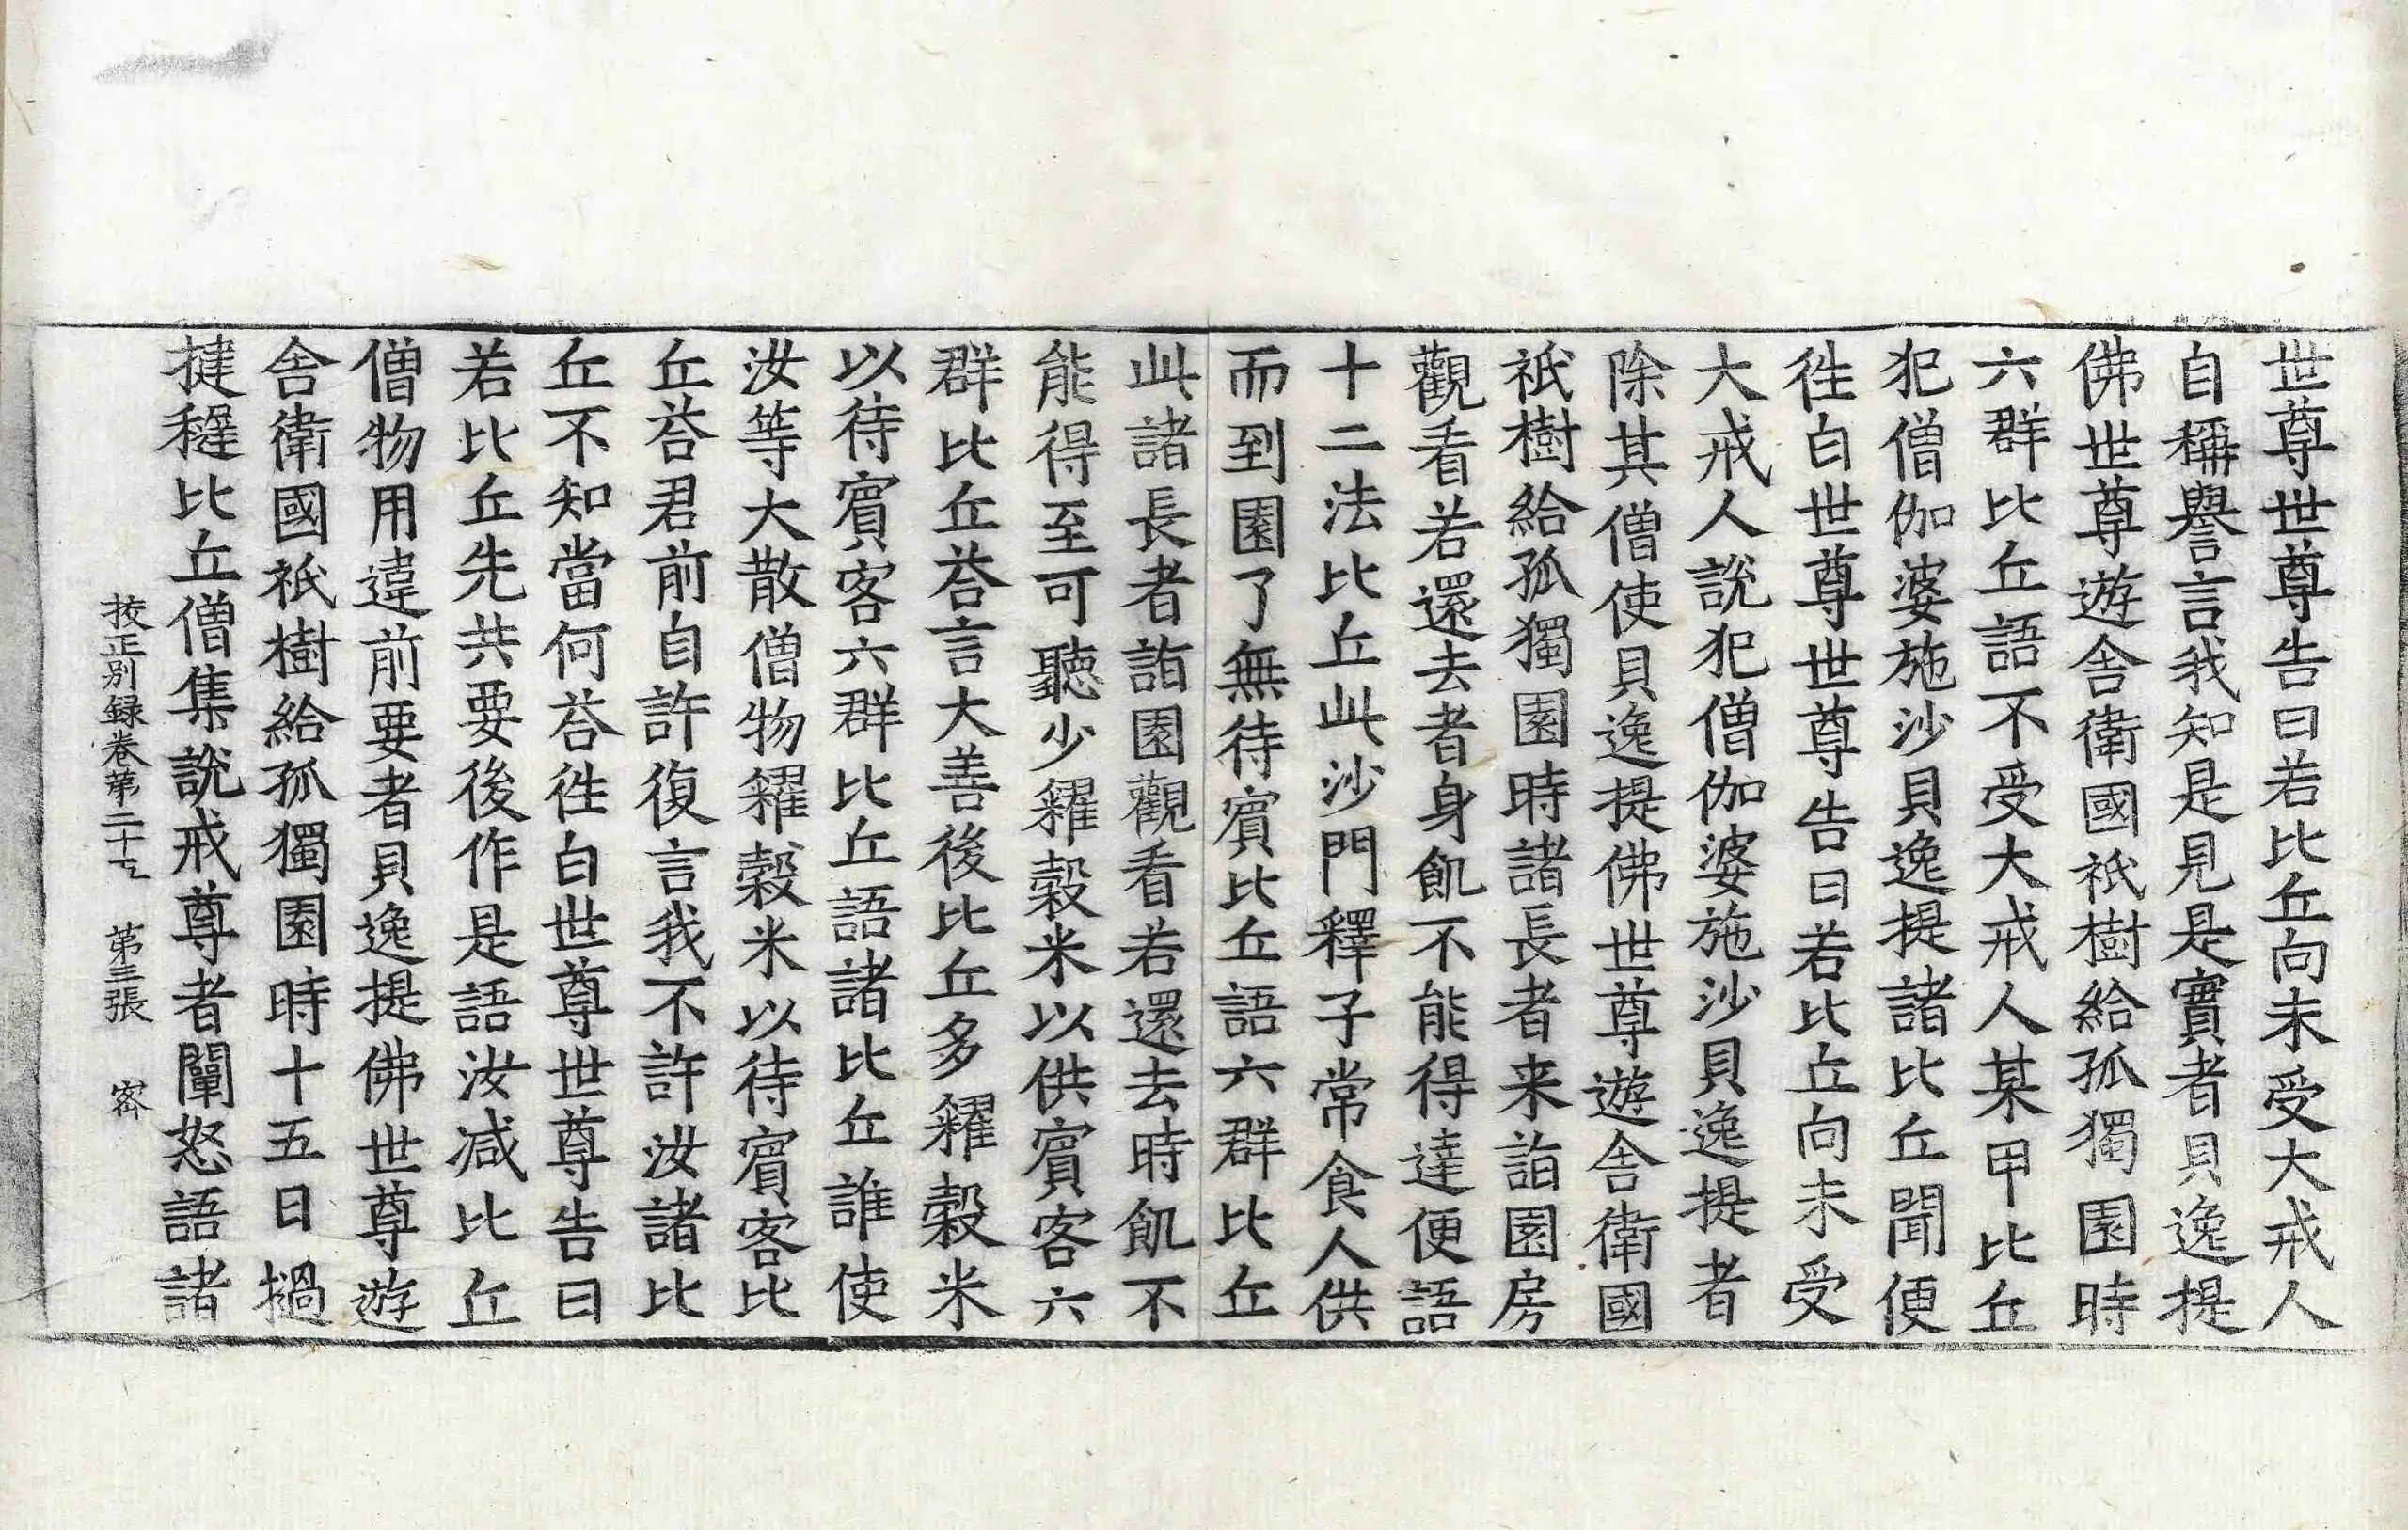 世尊世尊告曰若比丘向未受大戒人
自稱譽言我知是見是實者貝逸提
佛世尊遊舍衛國祇樹給孤獨園時
六群比丘語不受大戒人某甲比丘
犯僧伽婆施沙貝逸提諸比丘聞便
徃白世尊世尊告曰若比丘向未受
大戒人說犯僧伽婆施沙貝逸提者
除其僧使貝逸提佛世尊遊舍衛國
祇樹給孤獨園時諸長者来詣園房
觀看若還去者身飢不能得達便語
十二法比丘此沙門釋子常食人供
而到園了無待賓比丘語六群比丘
此諸長者詣園觀看若還去時飢不
能得至可聽少糴穀米以供賓客六
群比丘荅言大善後比丘多糴穀米
以待賓客六群比丘語諸比丘誰使
汝等大散僧物糴穀米以待賓客比
丘荅君前自許復言我不許汝諸比
丘不知當何荅徃白世尊世尊告曰
若比丘先共要後作是語汝减比丘
僧物用違前要者貝逸提佛世尊遊
舍衛國祇樹給孤獨園時十五日撾
揵稺比丘僧集說戒尊者闡怒語諸
挍正別録卷苐二十七 苐三張 宻